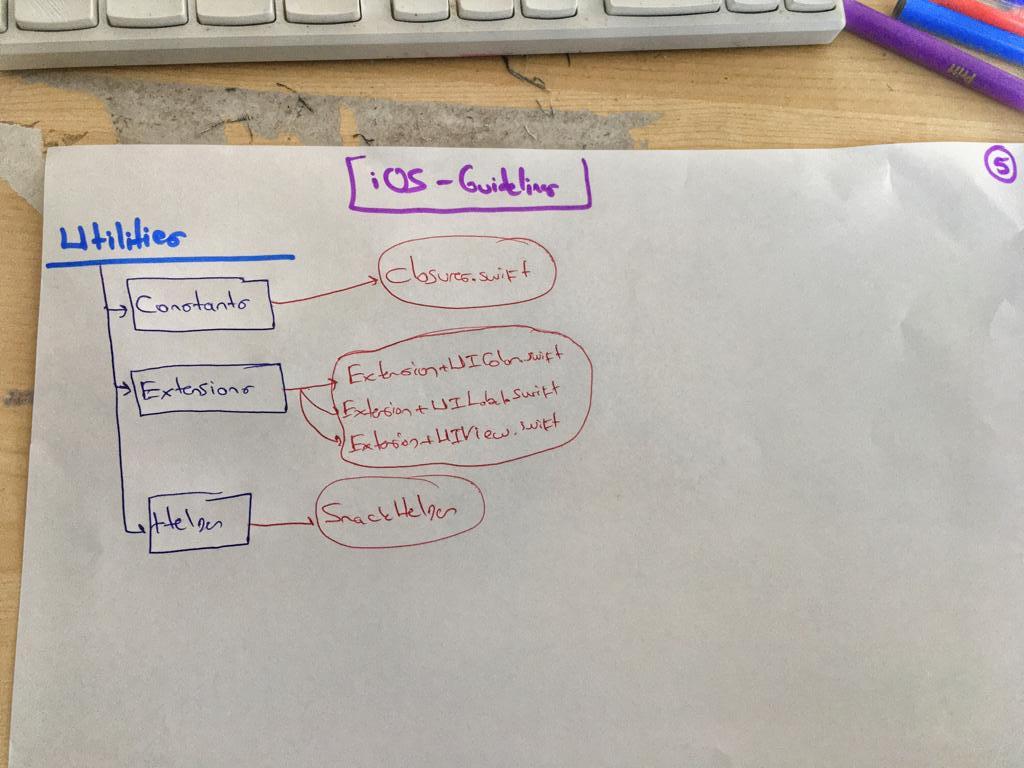 iOS - Guideline
5
Utilities
Constants
Closures.swift
Extensions
Extension+UIColor.swift
Extension+UILabel.swift
Extension+UIView.swift
Helper
SnackHelper